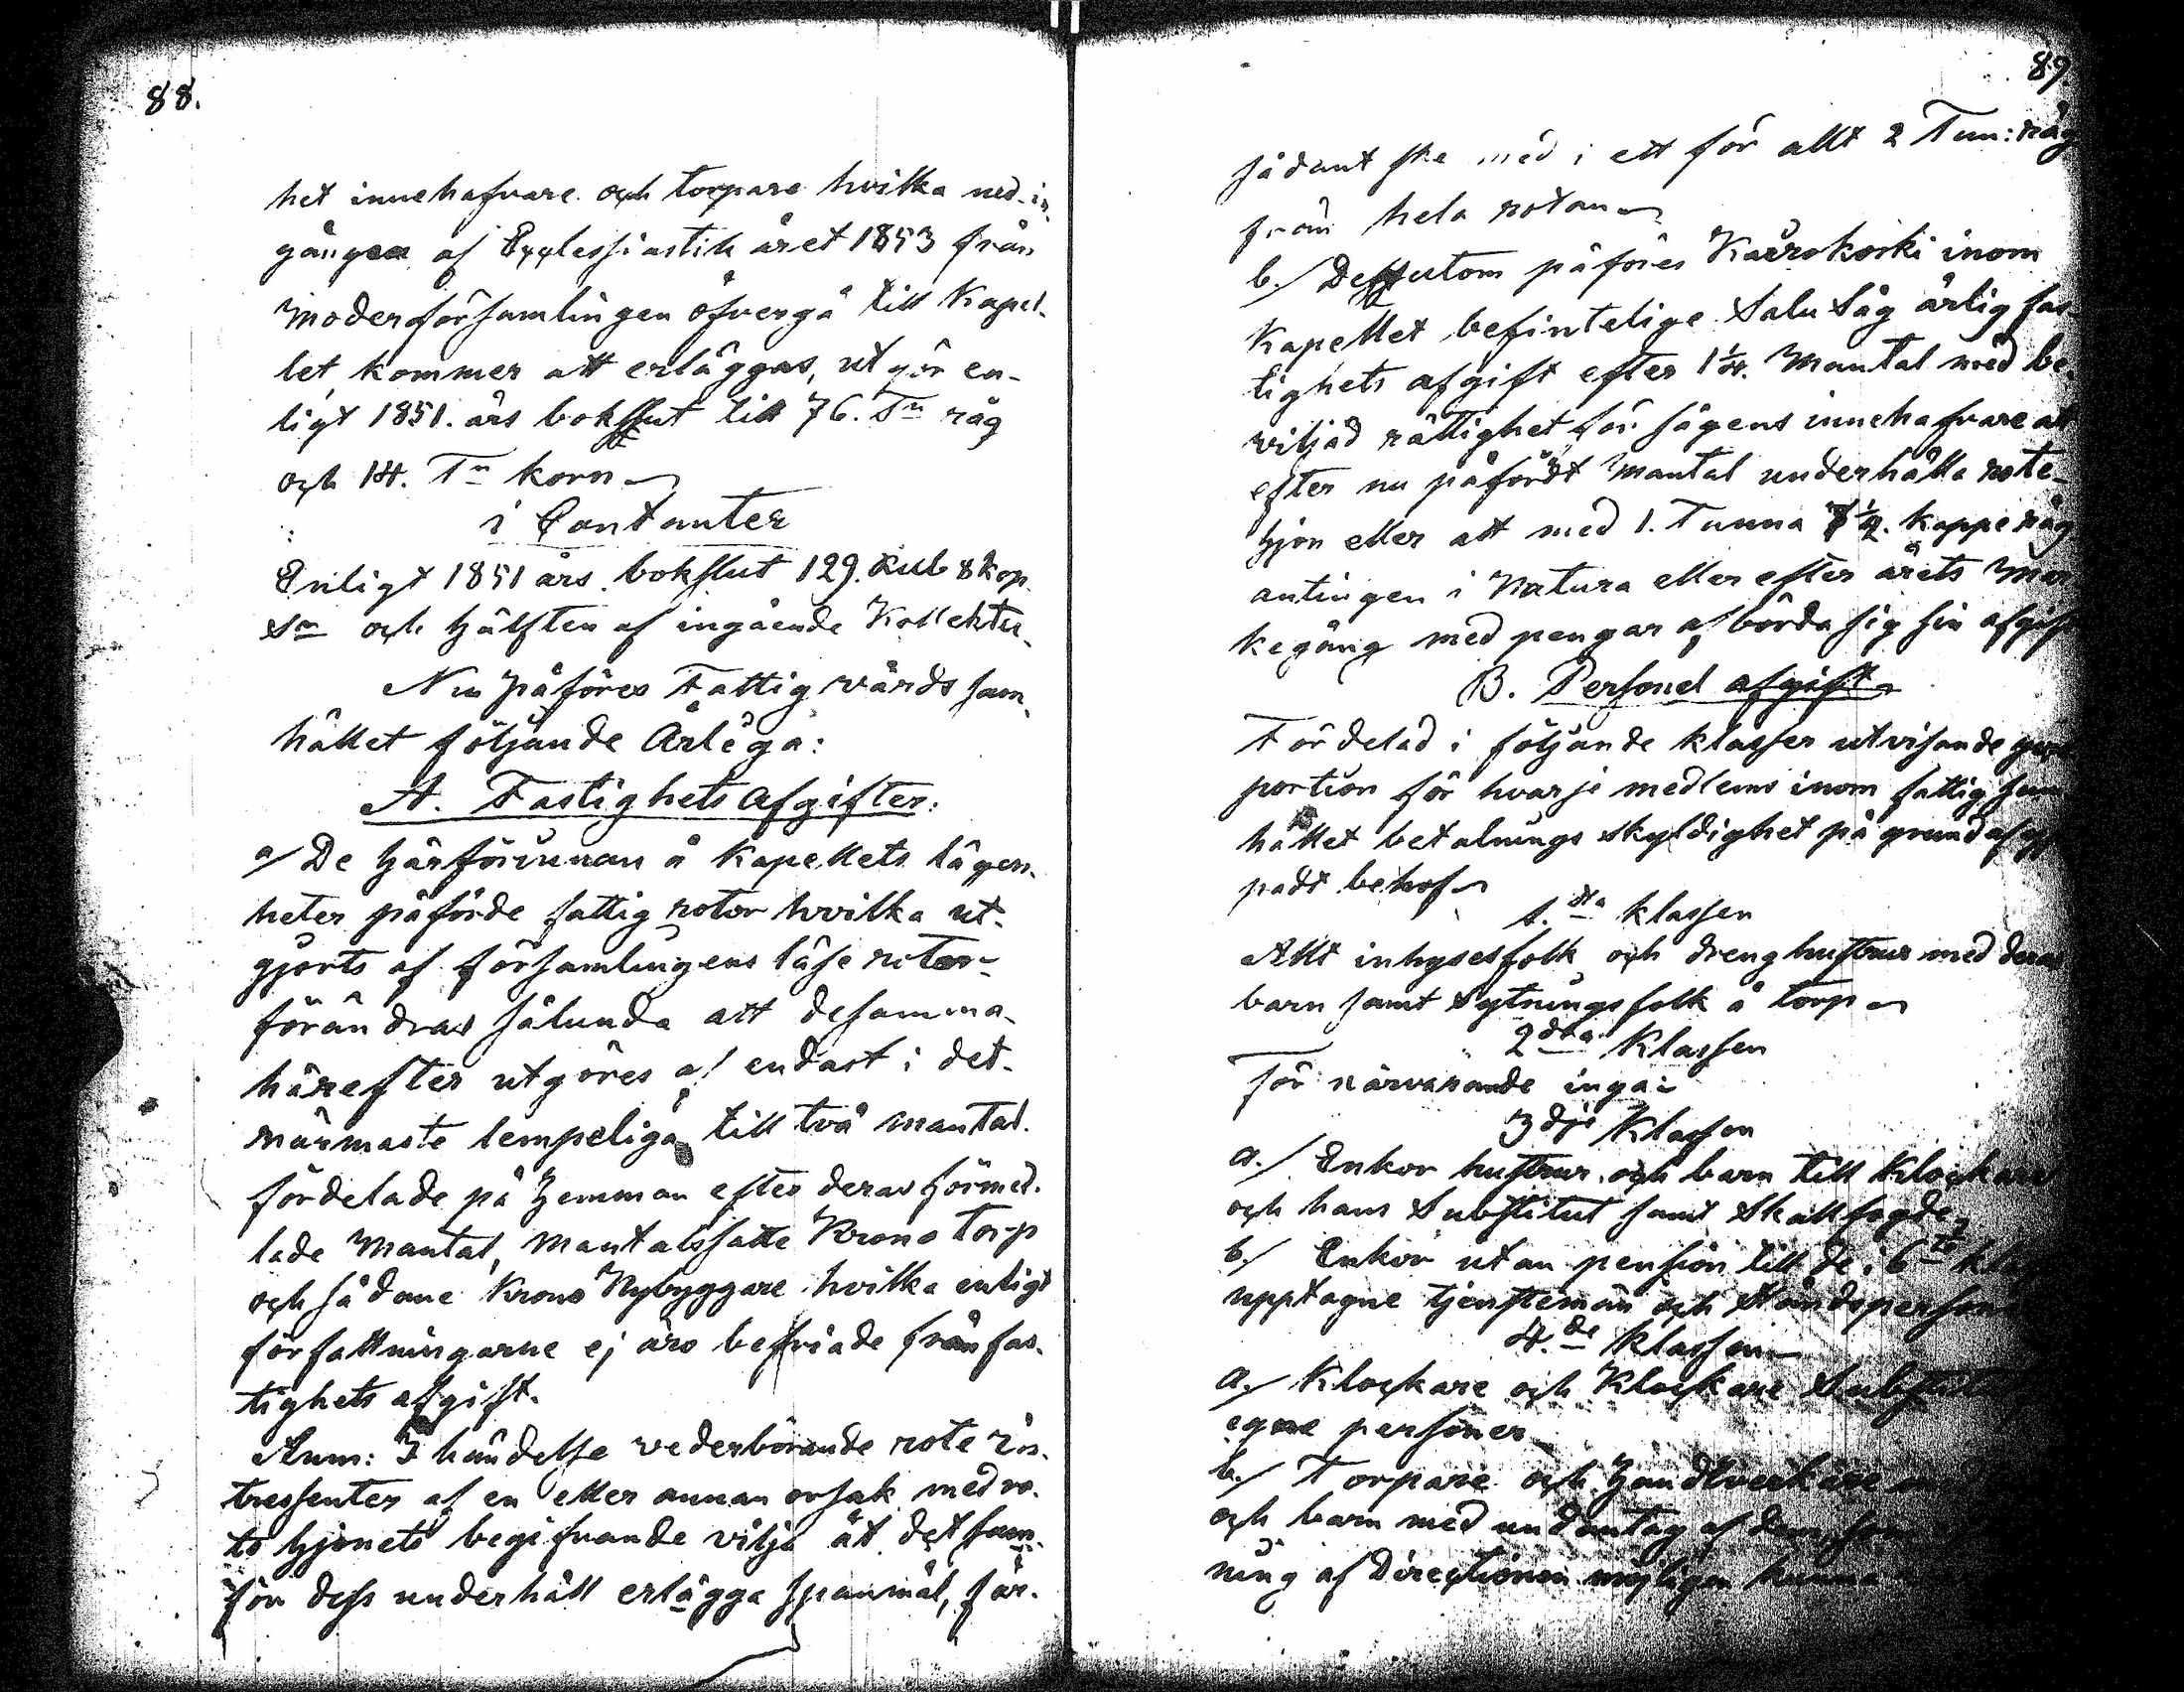 88.
het innehafvare och torpare hvilka med in-
gången af Ecclesiastik året 1853 från
moderförsamlingen öfvergå till Kapel-
let, kommer att erläggas, utgör en-
ligt 1851. års bokslut till 76. Tn råg
och 14. Tn korn
i Contanter
Enligt 1851 års bokslut 129. Rub 8 kop.
Sr och hälften af ingående Kollekter.
Nu påföres Fattigvårds sam-
hället följande Årliga:
A. Fastighets Afgifter:
a/ De härförinnan å Kapellets lägen-
heter påförde fattig rotor hvilka ut-
gjorts af församlingens läse rotor
förändras sålunda att desamma
härefter utgöres af endast i det
närmaste lempeliga till två mantal
fördelade på Hemman efter deras förmed-
lade Mantal, Mantalssatte Krono torp
och sådane Krono Nybyggare hvilka enligt
författningarne ej äro befriade från fas-
tighets afgift.
Anm: I händelse vederbörande rote in-
tressenter af en eller annan orsak med ro-
te hjonets begifvande vilja åt det sam-
för dess underhåll erlägga spanmål, får
89.
sådant ske med i ett för allt 2 Tun: råg
från hela rotan
b./ Dessutom påföres Kairokoski inom
Kapellet befintelige Salu Såg årlig fas-
tighets afgift efter 1 1/4. Mantal med be-
viljad rättighet för sågens innehafvare att
efter nu påfördt Mantal underhålla rote-
hjon eller att med 1. Tunna 7 1/2. kappe råg
antingen i Natura eller efter årets Mar-
kegång med pengar afbörda sig sin afgift
B. Personel afgift
Fördelad i följande klasser utvisande pro-
portion för hvarje medlems inom fattig sam-
hället betalnings skyldighet på grund af
padt behof
1.sta klassen
Allt inhysesfolk och drenghustrur med deras
barn samt Sytningsfolk å torp
2dra Klassen
För närvarande inga
3dje Klassen
a./ Enkor hustrur och barn till Klockare
och hans Substitut samt Skallfogde
b./ Enkor utan pension till de i 6te
upptagne tjenstemän och Ståndspersoner
4.de Klassen
a./ Klockare och Klockare Substitut
egne personer
b./ Torpare och Handtverkare
och barn med undantag af dem, som
ning af Directionen möjligen kunna